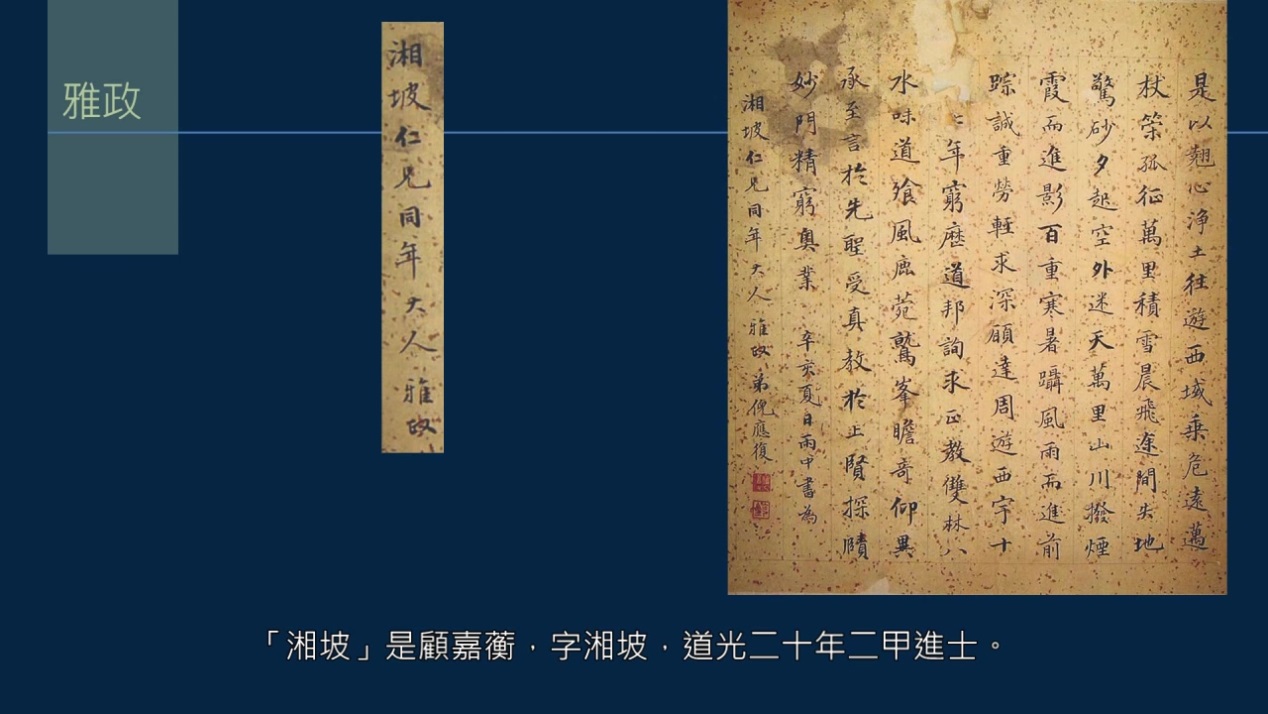 雅政
湘坡仁兄同年大人雅政
是以翹心淨土往遊西域乘危遠邁
杖策孤征萬里積雪晨飛途間失地
驚砂夕起空外迷天萬里山川撥煙
霞而進影百重寒暑躡風雨而進前
踪誠重勞輕求深願達周遊西宇十
年窮歷道邦詢求正教雙林八
水味道飡風鹿菀鷲峯瞻奇仰異
承至言於先聖受真教於上賢探賾
妙門精窮奧業 辛亥夏日雨中書為
湘坡仁兄同年大人雅政 弟倪應復
「湘坡」是顧嘉蘅，字湘坡，道光二十年二甲進士。